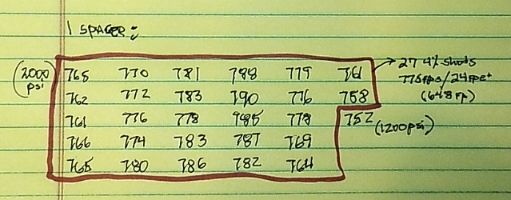 1 SPACER:
(2000 psi) 765 770 781 788 779 761 → 27 4% shots
762 772 783 790 776 758 775fps/24fpe
761 776 778 785 778 752 (648fp)
766 774 783 787 769 (1200psi)
765 780 786 782 764